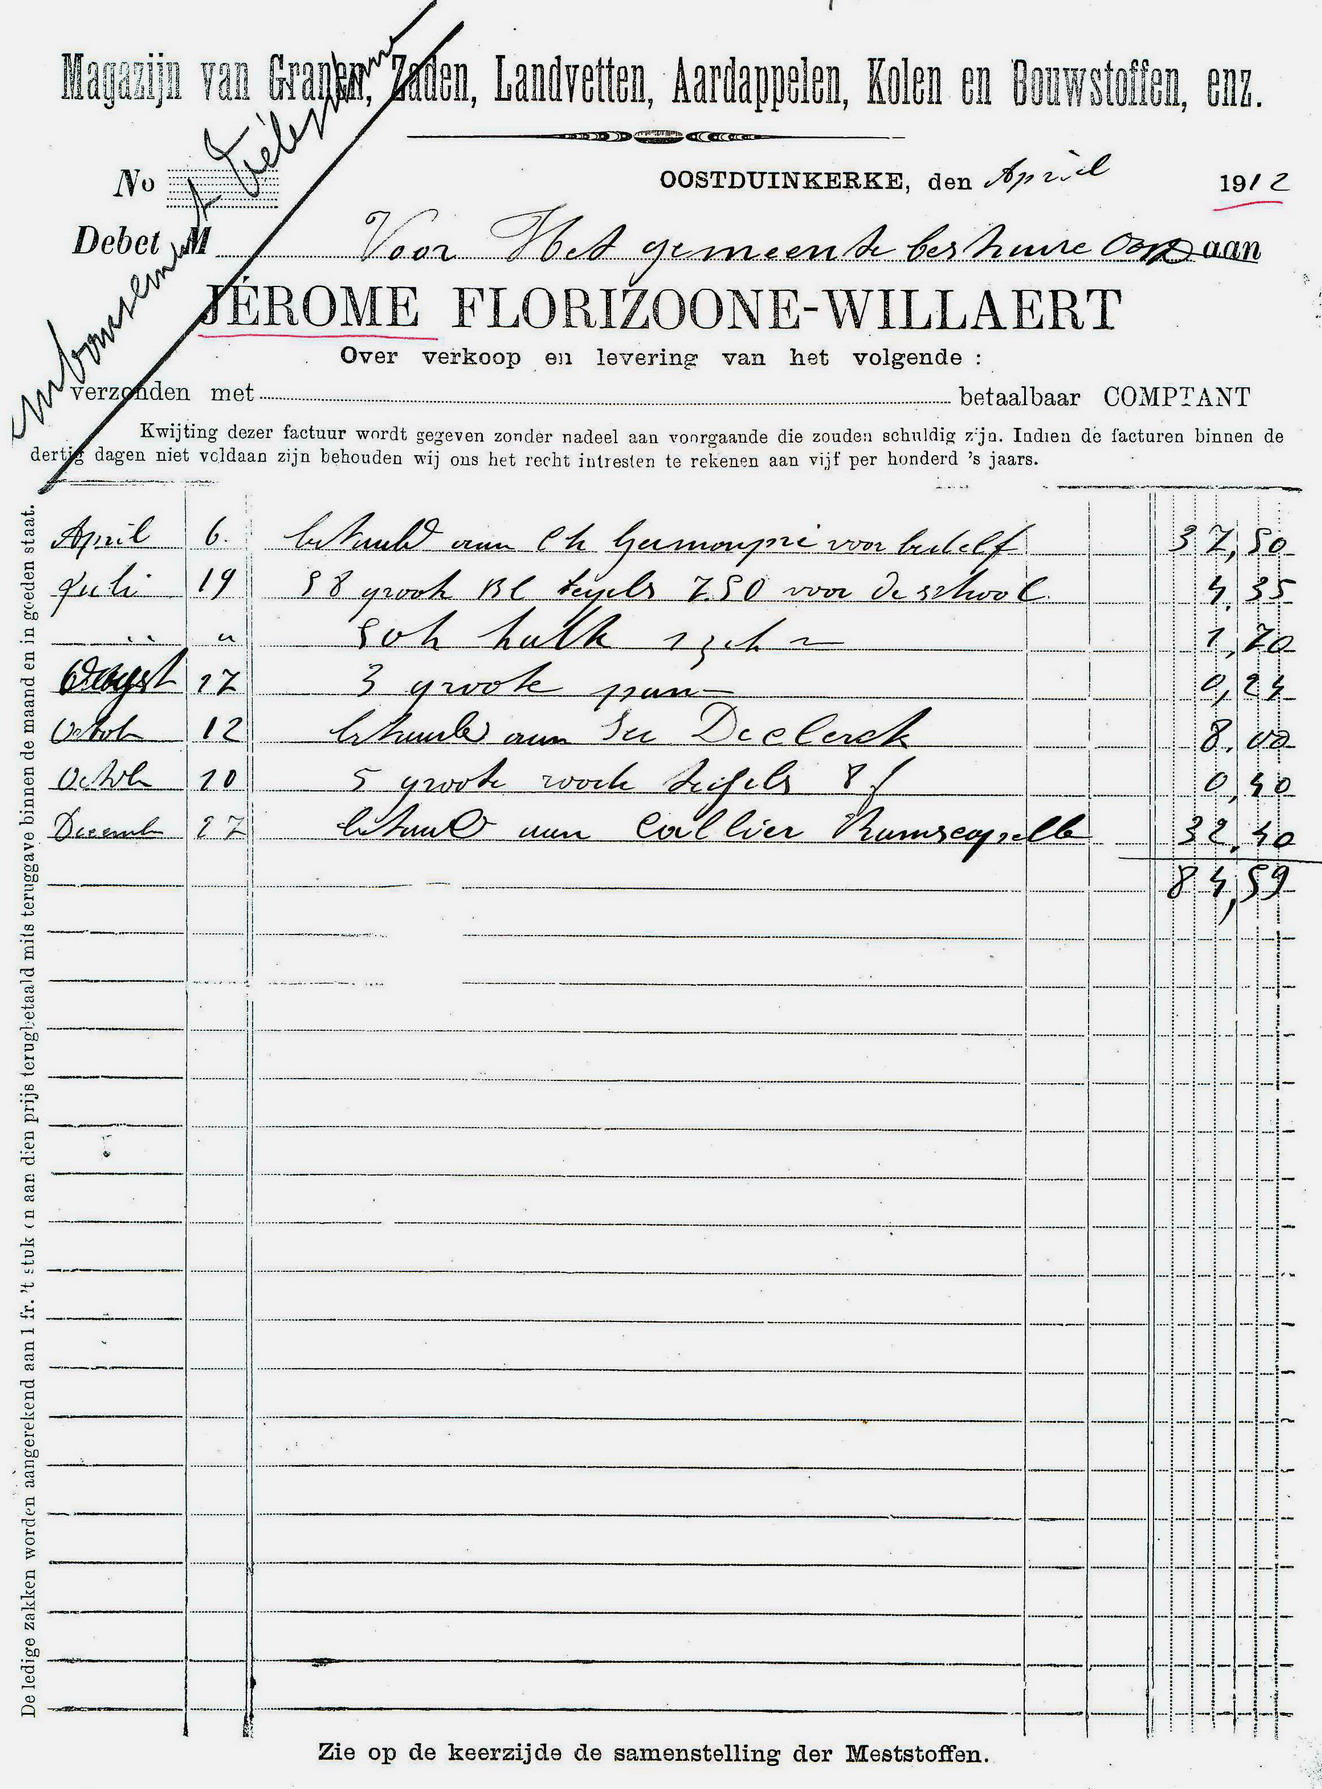 Magazijn van Granen, Zaden, Landvetten, Aardappelen, Kolen en Bouwstoffen, enz.
No
OOSTDUINKERKE, den April 1912
Debet M Voor Het gemeente bestuure aan
JÉROME FLORIZOONE-WILLAERT
Over verkoop en levering van het volgende :
verzonden met betaalbaar COMPTANT
Kwijting dezer factuur wordt gegeven zonder nadeel aan voorgaande die zouden schuldig zijn. Indien de facturen binnen de
dertig dagen niet voldaan zijn behouden wij ons het recht intresten te rekenen aan vijf per honderd 's jaars.
April 6. betaald aan Ch voor 37,50
Juli 19 58 groote Bl tegels 7.50 voor de school 4,35
" " 50k kalk 1,70
17 3 groote 0,24
Octob 12 betaald aan Declerck 8.00
Octob 10 5 groote roode tegels 8f 0,40
Decemb 27 betaald aan Collier Ramscapelle 32,40
84,59
De ledige zakken worden aangerekend aan 1 fr. 't stuk en aan dien prijs terugbetaald mits teruggave binnen de maand en in goeden staat.
Zie op de keerzijde de samenstelling der Meststoffen.